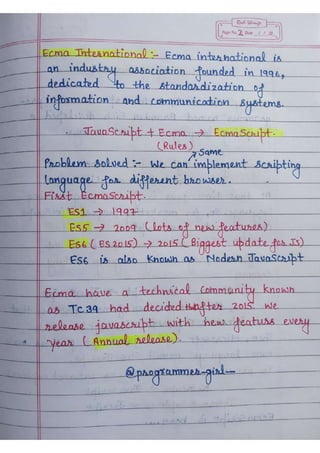 Page No. 2 Date
Ecma International :- Ecma international is
an industry association founded in 1994,
dedicated to the standardization of
information and communication systems.
JavaScript + Ecma → EcmaScript.
(Rules)
Same
Problem Solved :- We can implement scripting
Language for different browser.
First EcmaScript.
ES1 → 1997
ES5 → 2009 (Lots of new features)
ES6 (ES2015) → 2015 (Biggest update for JS)
ES6 is also known as Modern JavaScript
Ecma have a technical Community known
as TC39 had decided after 2015 we
release javascript with new featurs every
year (Annual release).
@programmer-girl-